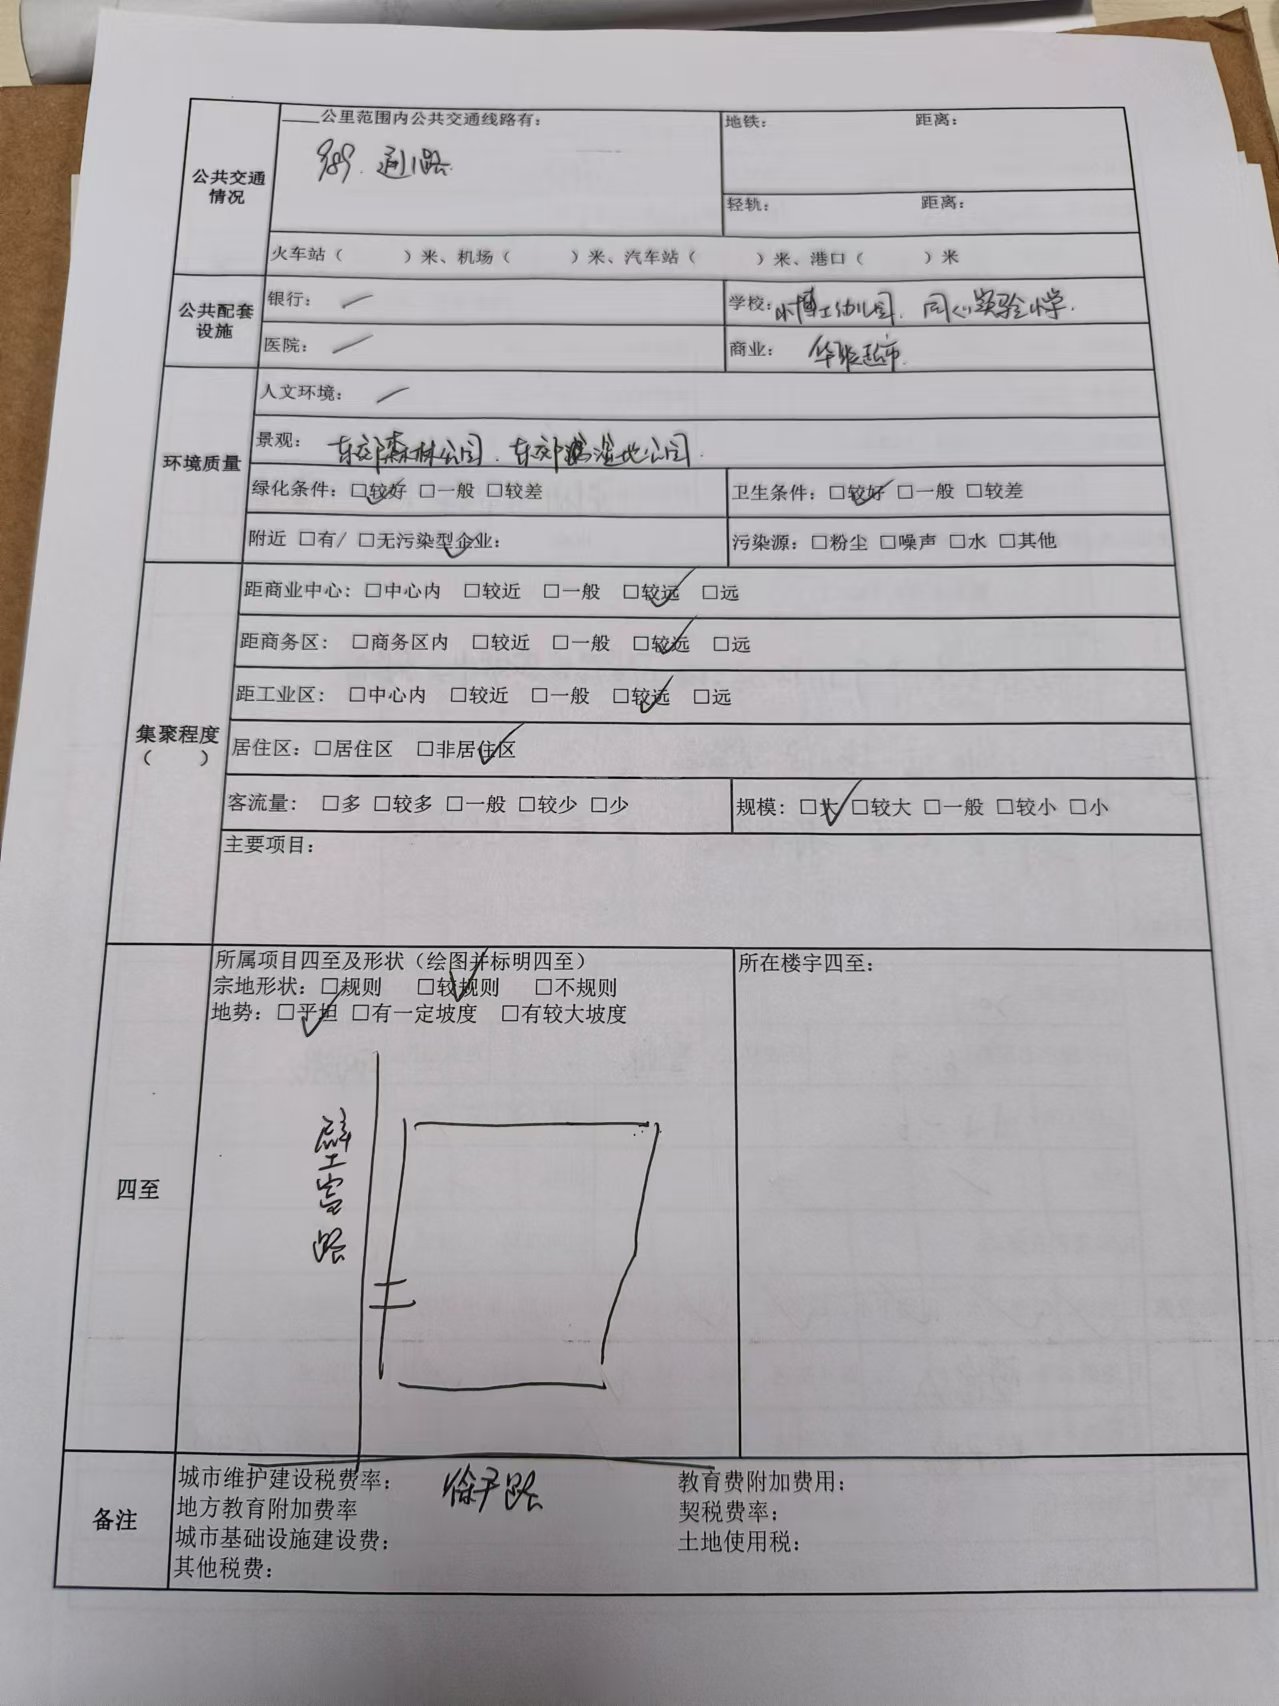 公共交通情况
____公里范围内公共交通线路有：
989、通1路
地铁： 距离：
轻轨： 距离：
火车站（ ）米、机场（ ）米、汽车站（ ）米、港口（ ）米
公共配套设施
银行：/
学校：小博士幼儿园、同心实验小学.
医院：/
商业：华联超市.
环境质量
人文环境：/
景观：东郊森林公园、东郊湿地公园.
绿化条件：□较好✓ □一般 □较差
卫生条件：□较好✓ □一般 □较差
附近 □有/ □无污染型企业：✓
污染源：□粉尘 □噪声 □水 □其他
集聚程度（ ）
距商业中心：□中心内 □较近 □一般 □较远✓ □远
距商务区：□商务区内 □较近 □一般 □较远✓ □远
距工业区：□中心内 □较近 □一般 □较远✓ □远
居住区：□居住区 □非居住区✓
客流量：□多 □较多 □一般 □较少 □少
规模：□大✓ □较大 □一般 □较小 □小
主要项目：
四至
所属项目四至及形状（绘图并标明四至）
宗地形状：□规则 □较规则✓ □不规则
地势：□平坦✓ □有一定坡度 □有较大坡度
所在楼宇四至：
壁富路
徐尹路
备注
城市维护建设税费率： 教育费附加费用：
地方教育附加费率 契税费率：
城市基础设施建设费： 土地使用税：
其他税费：